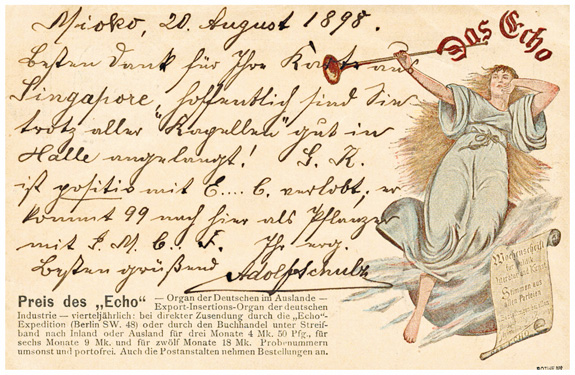 Mioko, 20. August 1898.
Das Echo
Besten Dank für Ihre Karte aus
Singapore, hoffentlich sind Sie
trotz aller "Kagellen" gut in
Halle angelangt! G. K.
ist positiv mit E.... C. verlobt, er
kommt 99 nach hier als Pflanzer
mit F. M. C. F. Ihr erg.
Besten grüßend Adolf Schulz
Wochenschrift
für Politik
Literatur
Stimmen aus
Parteien
Preis des „Echo“ — Organ der Deutschen im Auslande —
Export-Insertions-Organ der deutschen
Industrie — vierteljährlich: bei direkter Zusendung durch die „Echo“-
Expedition (Berlin SW. 48) oder durch den Buchhandel unter Streif-
band nach Inland oder Ausland für drei Monate 4 Mk. 50 Pfg., für
sechs Monate 9 Mk. und für zwölf Monate 18 Mk. Probenummern
umsonst und portofrei. Auch die Postanstalten nehmen Bestellungen an.